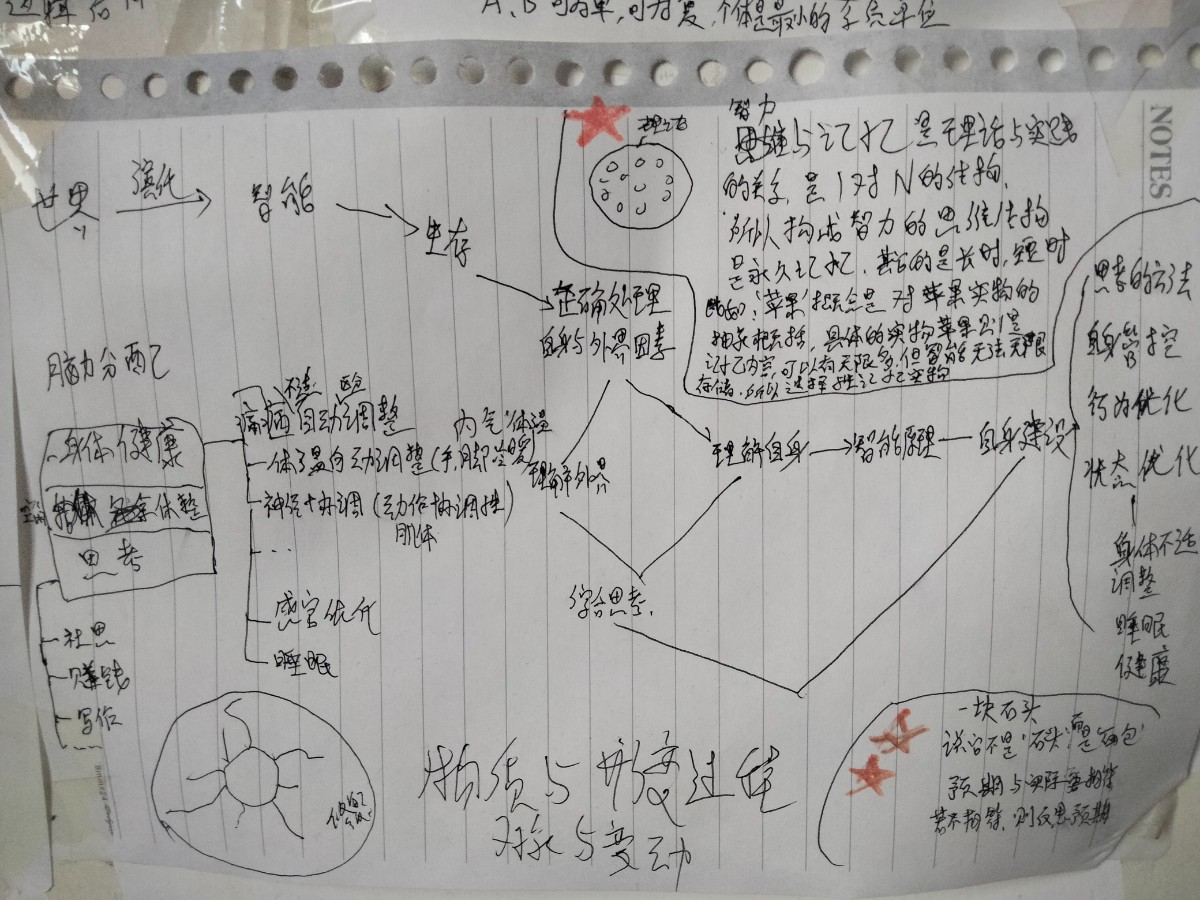 A、B可为单,可为复,个体是最小的单位
NOTES
智力
思维与记忆是理论与实践
的关系,是1对N的结构,
所以构成智力的思维结构
是永久记忆,其它的是长时,短时
'苹果'概念是对苹果实物的
抽象概括,具体的实物苹果则是
记忆内容,可以有无限多,但智能无法无限
存储,所以选择性记忆实物
世界
演化
智能
生存
正确处理
自身与外界因素
理解外界
理解自身
智能原理
自身建设
综合思考
思考的方法
自身管控
行为优化
状态优化
身体不适
调整
睡眠
健康
脑力分配
身体健康
休整
思考
社思
赚钱
写作
不适
痛 自动调整
内气体温
体温自动调整(手,脚冷暖)
神经协调(动作协调性)
肌体
...
感官优化
睡眠
物质与形变过程
对象与变动
一块石头
说它不是'石头'而是'面包'
预期与实际要相等
若不相等,则反思预期